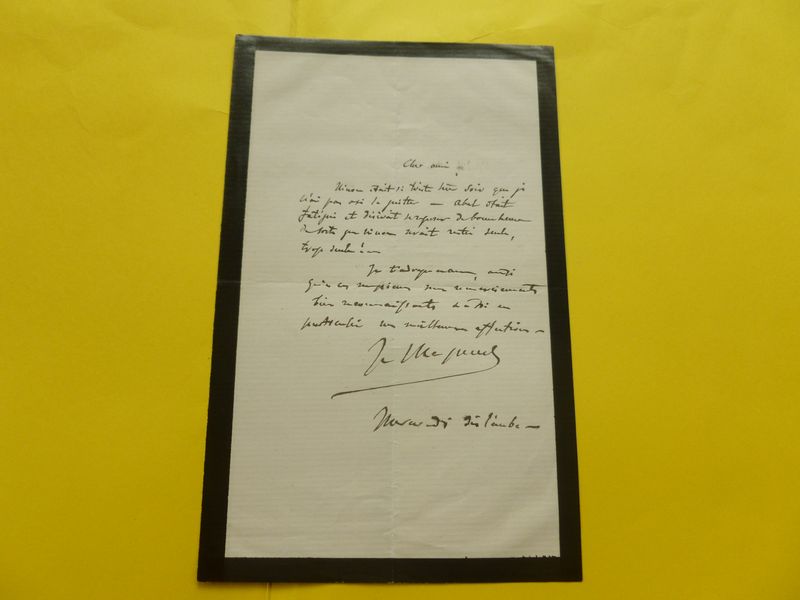 Cher ami
Ninon était si triste hier soir que je
n'ai pas osé la quitter — Abel était
fatigué et désirait se reposer de bonne heure
de sorte que Ninon serait restée seule,
trop seule! —
Je t'adresse aussi
qu'à ces messieurs mes remerciements
bien reconnaissants et à toi en
particulier mes meilleures affections —
Mercredi dès l'aube —